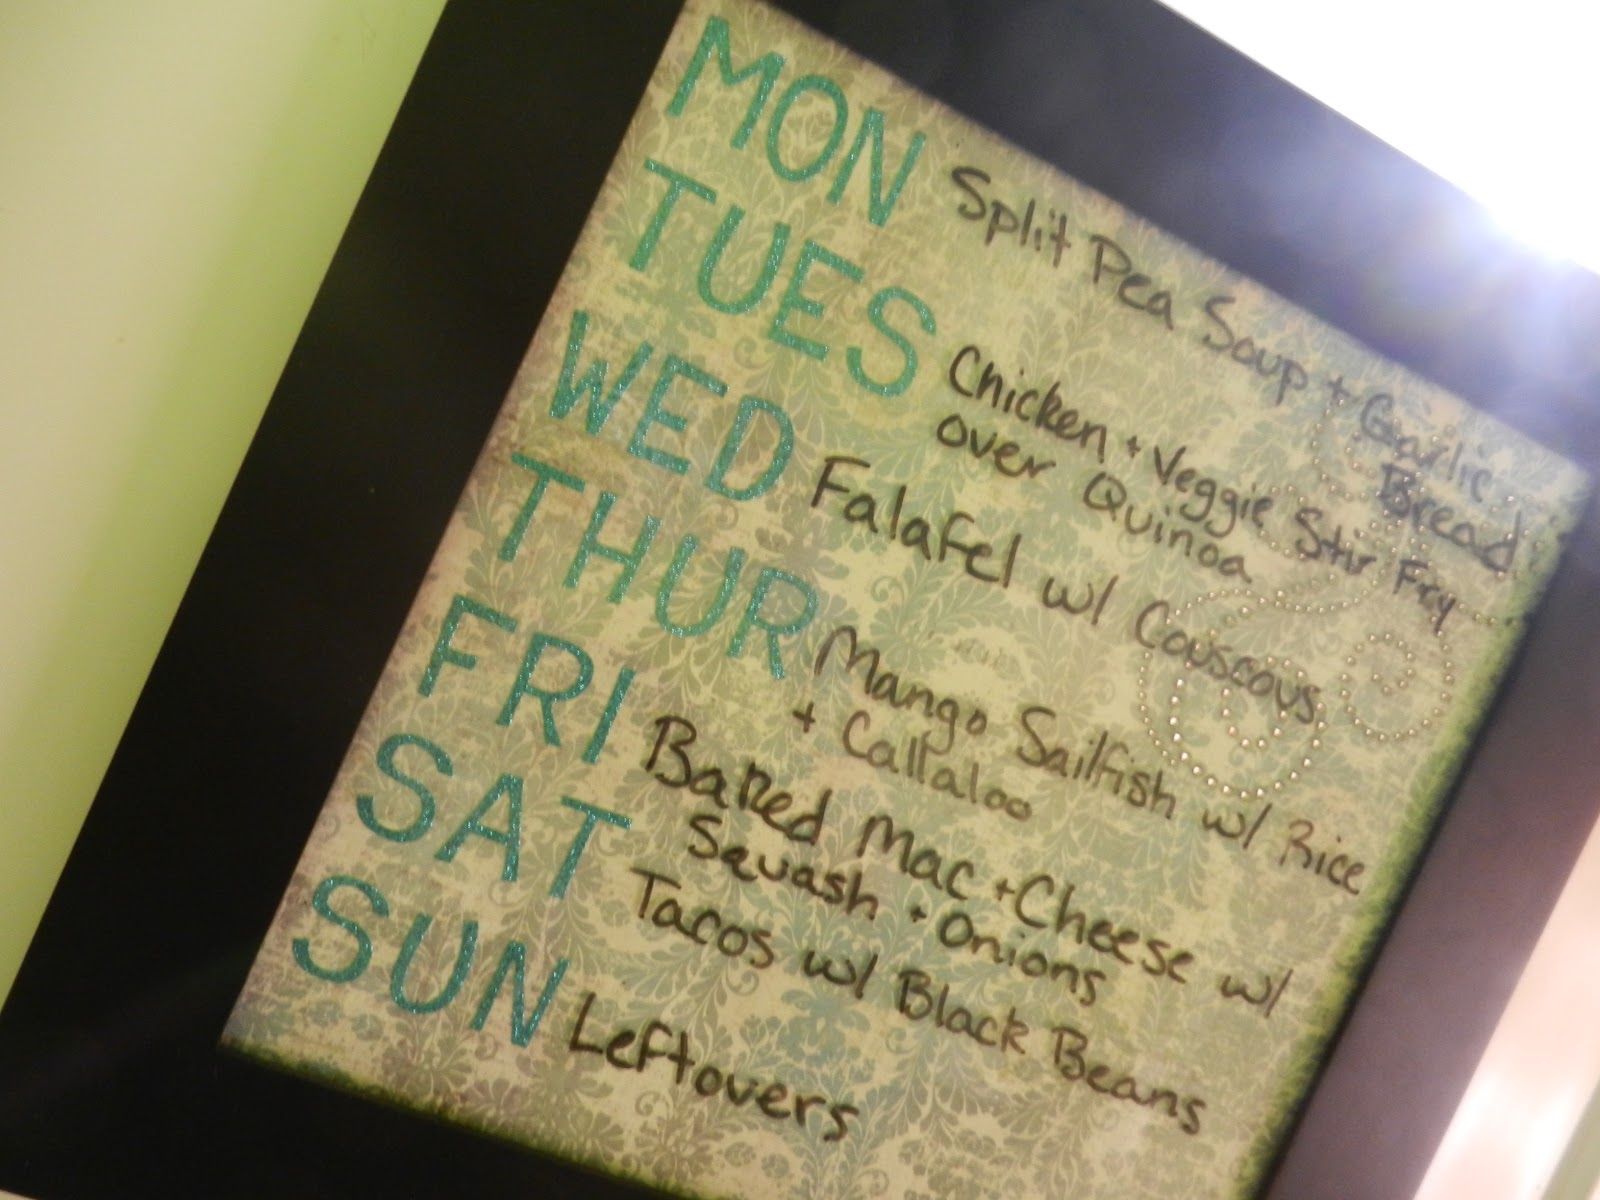 MON Split Pea Soup + Garlic
Bread
TUES Chicken + Veggie Stir Fry
over Quinoa
WED Falafel w/ Couscous
THUR Mango Sailfish w/ Rice
+ Callaloo
FRI Baked Mac + Cheese w/
Squash + Onions
SAT Tacos w/ Black Beans
SUN Leftovers